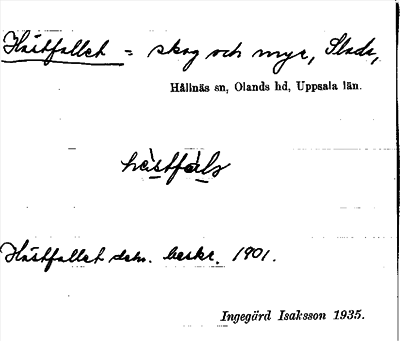 Hästfallet = skog och myr, Slada,
Hållnäs sn, Olands hd, Uppsala län.
hästfalз
Hästfallet dsm. beskr. 1901.
Ingegärd Isaksson 1935.